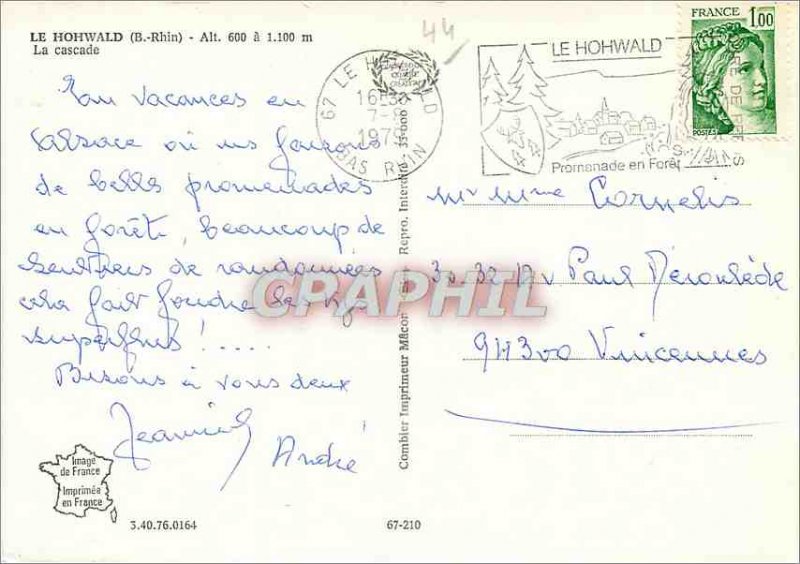 LE HOHWALD (B.-Rhin) - Alt. 600 à 1.100 m
La cascade
44
67 LE HOHWALD
16H30
7-
1979
BAS RHIN
LE HOHWALD
Promenade en Forêt
FRANCE 1,00
POSTES
vacances en
l'alsace où ns faisons
de belles promenades
en forêt, beaucoup de
sentiers de randonnées
cela fait fondre les kgs
superflus ! ....
Bisous à vous deux
André
Mr Mme Cornelis
30-32 Av Paul Déroulède
94300 Vincennes
Combier Imprimeur Mâcon
Repro. Interdite
CPAPHIL
Image
de France
Imprimée
en France
3.40.76.0164
67-210